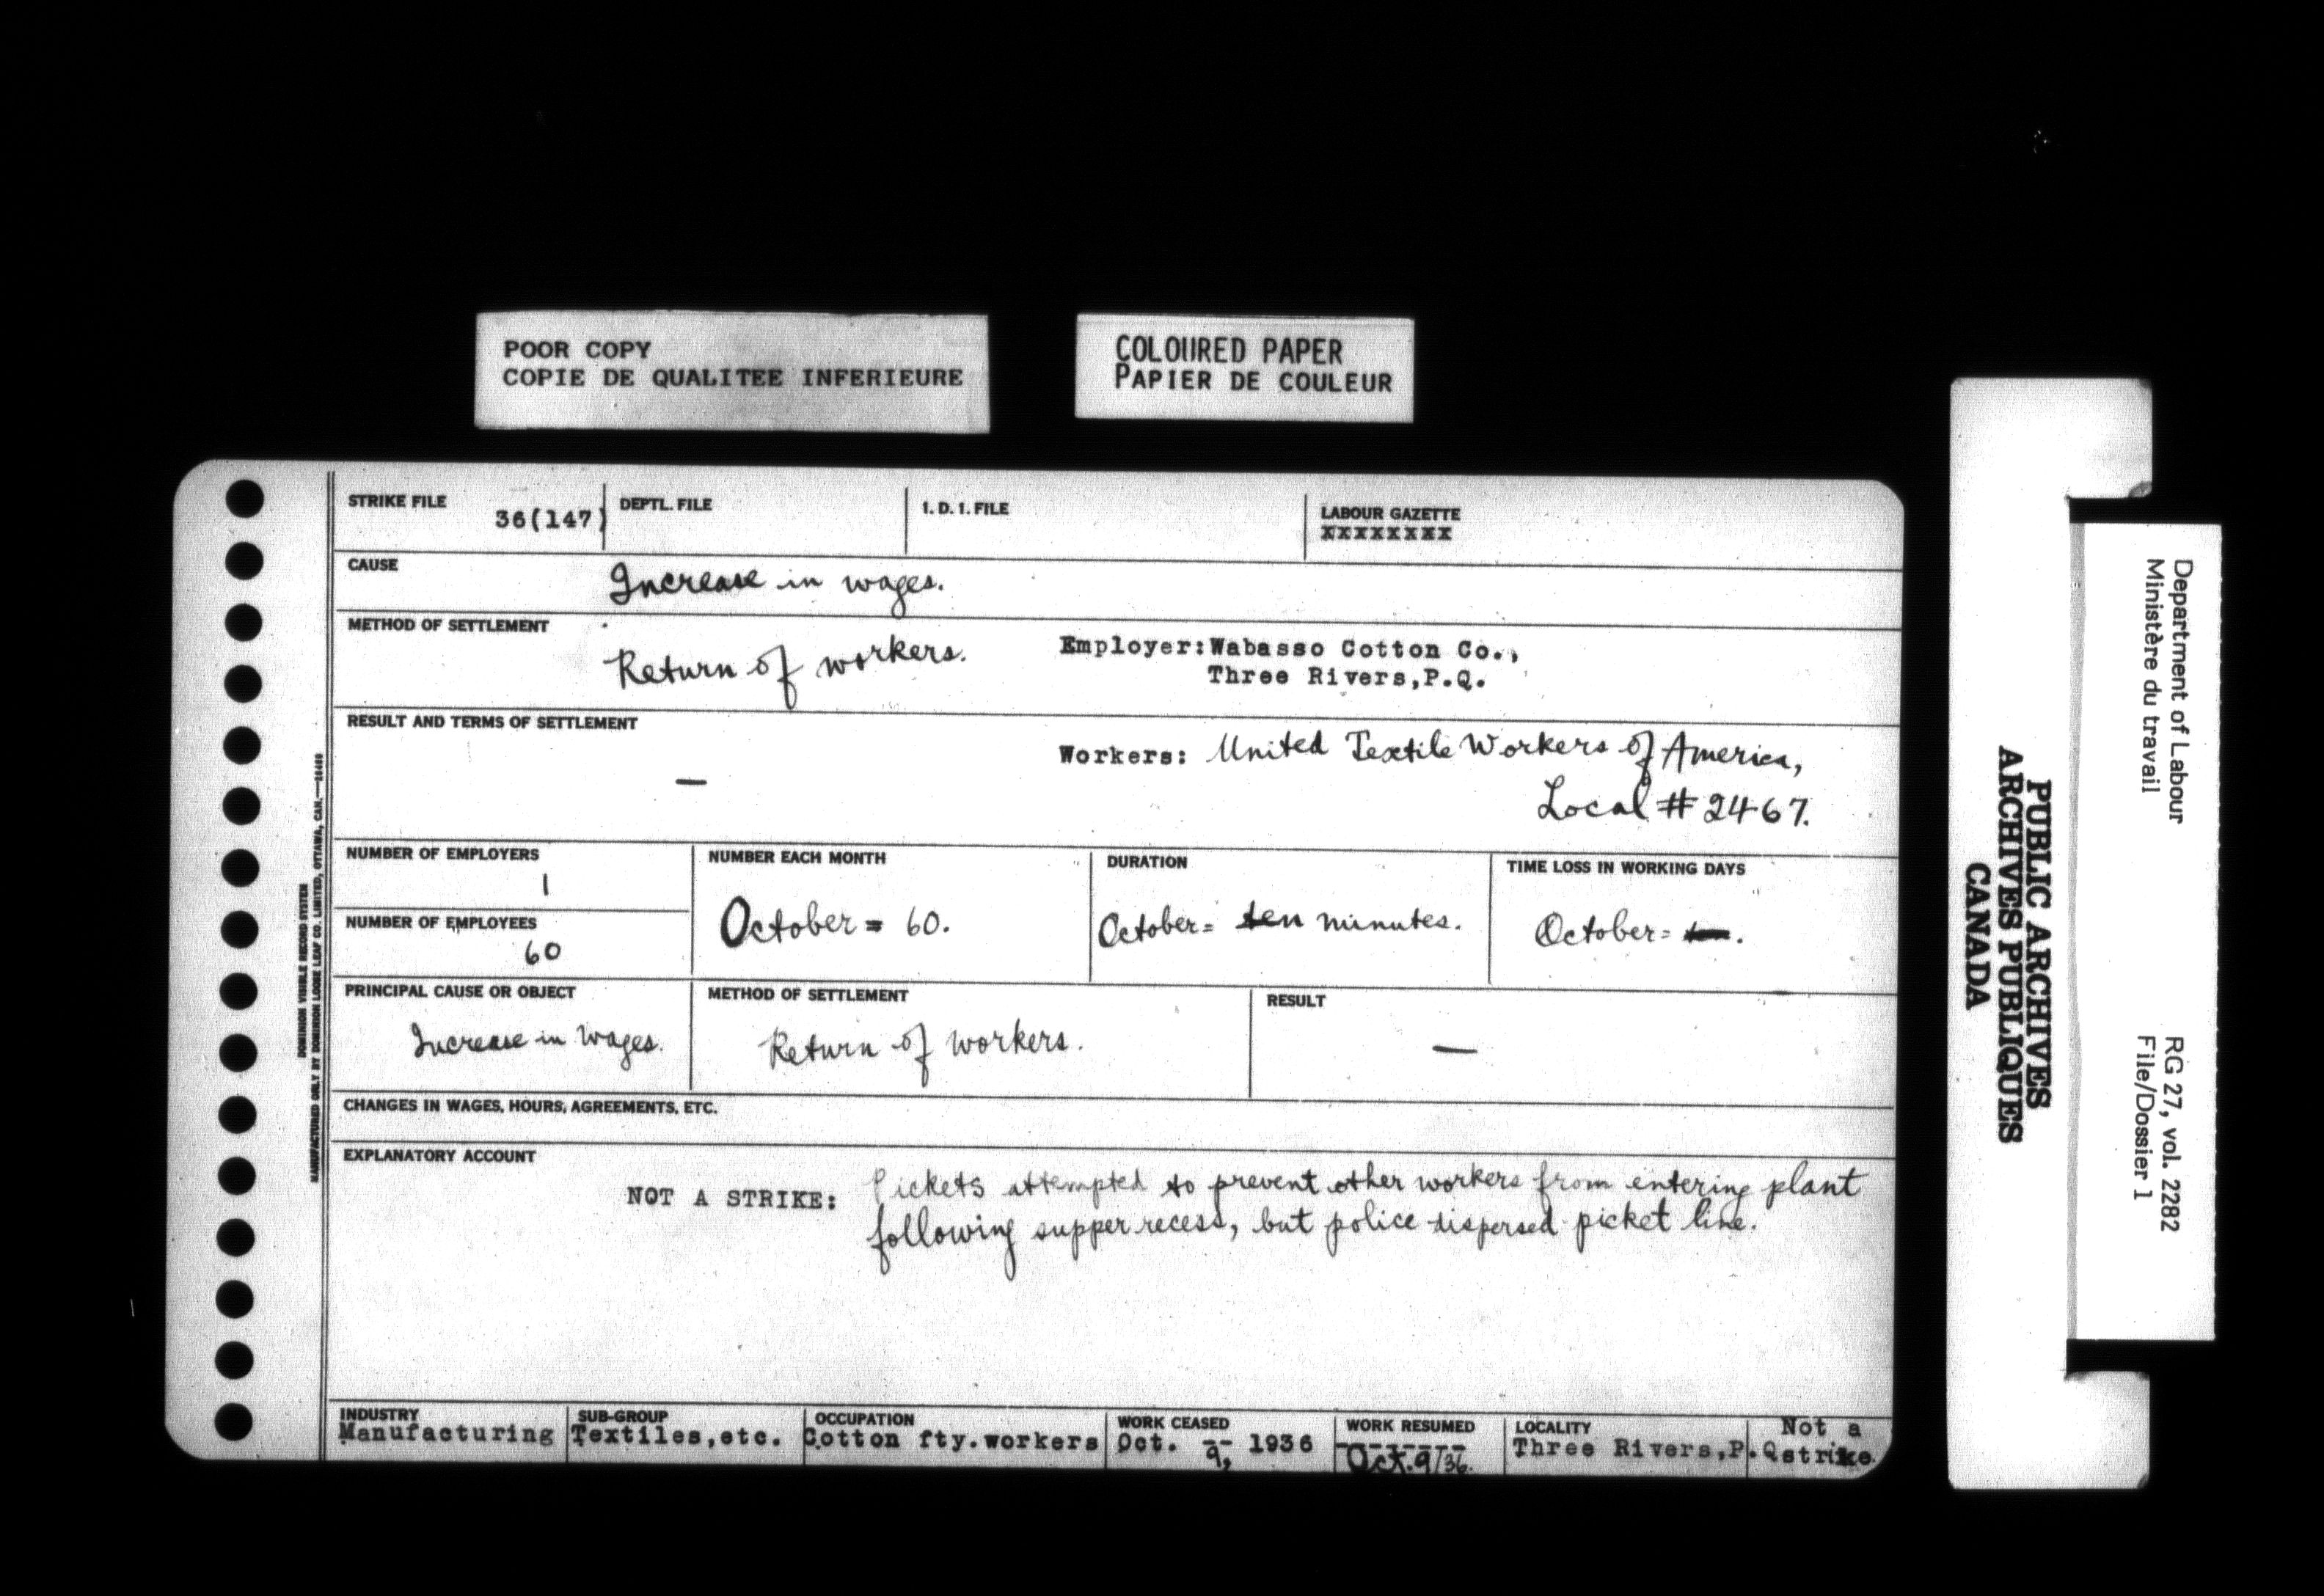 POOR COPY
COPIE DE QUALITEE INFERIEURE
COLOURED PAPER
PAPIER DE COULEUR
STRIKE FILE
36(147)
DEPTL. FILE
I. D. I. FILE
LABOUR GAZETTE
XXXXXXXX
CAUSE
Increase in wages.
METHOD OF SETTLEMENT
Return of workers.
Employer:Wabasso Cotton Co.,
Three Rivers,P.Q.
RESULT AND TERMS OF SETTLEMENT
—
Workers: United Textile Workers of America,
Local # 2467.
NUMBER OF EMPLOYERS
1
NUMBER OF EMPLOYEES
60
NUMBER EACH MONTH
October = 60.
DURATION
October = ten minutes.
TIME LOSS IN WORKING DAYS
October = .
PRINCIPAL CAUSE OR OBJECT
Increase in wages.
METHOD OF SETTLEMENT
Return of workers.
RESULT
—
CHANGES IN WAGES, HOURS, AGREEMENTS, ETC.
EXPLANATORY ACCOUNT
NOT A STRIKE: Pickets attempted to prevent other workers from entering plant
following supper recess, but police dispersed picket line.
INDUSTRY
Manufacturing
SUB-GROUP
Textiles,etc.
OCCUPATION
Cotton fty.workers
WORK CEASED
Oct. -- 1936
9,
WORK RESUMED
-------
Oct. 9/36.
LOCALITY
Three Rivers,P.Q
Not a
strike.
DOMINION VISIBLE RECORD SYSTEM
MANUFACTURED ONLY BY DOMINION LOOSE LEAF CO. LIMITED, OTTAWA, CAN.
PUBLIC ARCHIVES
ARCHIVES PUBLIQUES
CANADA
Department of Labour
Ministère du travail
RG 27, vol. 2282
File/Dossier 1